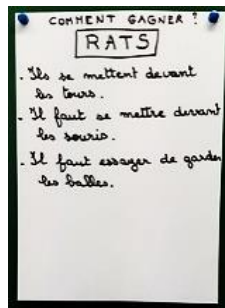 COMMENT GAGNER ?
RATS
. Ils se mettent devant
les tours.
. Il faut se mettre devant
les souris.
. Il faut essayer de garder
les balles.